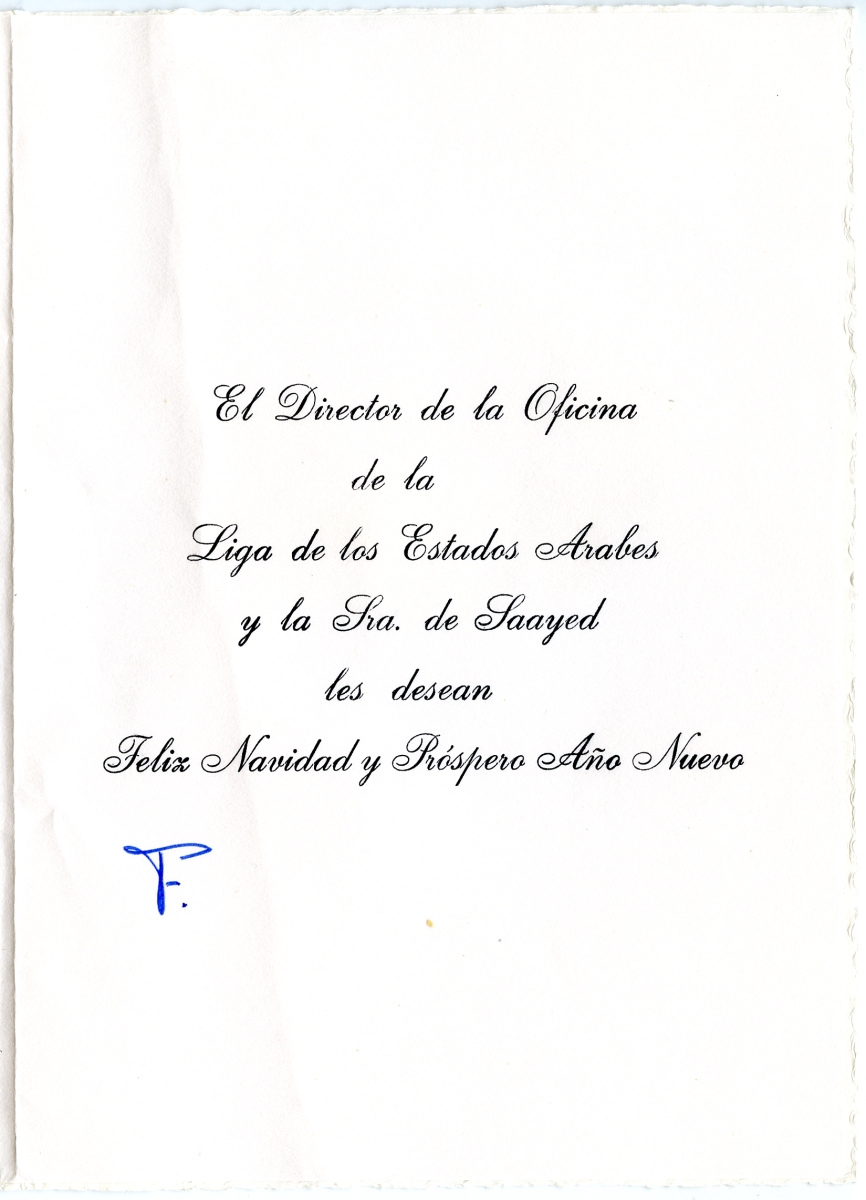 El Director de la Oficina
de la
Liga de los Estados Arabes
y la Sra. de Saayed
les desean
Feliz Navidad y Próspero Año Nuevo
F.